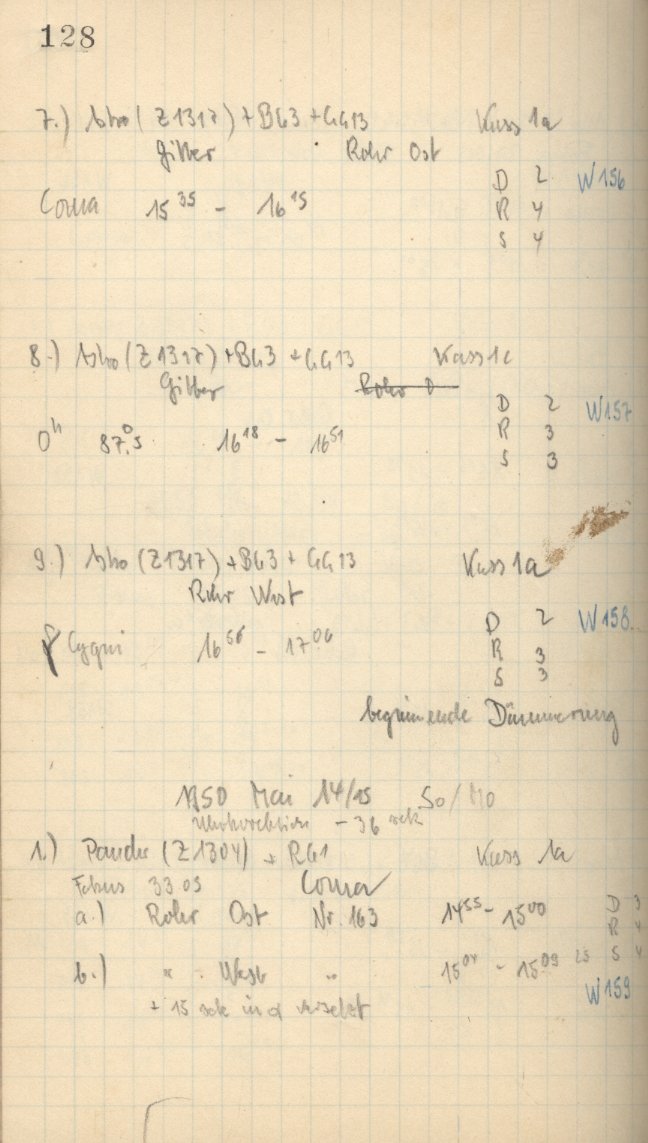 128
7.) Astro (Z1317) + BG3 + GG13 Kass 1a
Gitter Rohr Ost
D 2 W156
Coma 15 35 - 16 15 R 4
S 4
8.) Astro (Z1317) + BG3 + GG13 Kass 1c
Gitter Rohr O
D 2 W157
0h 87°.5 16 18 - 16 51 R 3
S 3
9.) Astro (Z1317) + BG3 + GG13 Kass 1a
Rohr West
D 2 W158
Cygni 16 56 - 17 06 R 3
S 3
beginnende Dämmerung
1950 Mai 14/15 So/Mo
Uhrkorrektion - 36 sek
1.) Panchr (Z1304) + RG1 Kass 1a
Fokus 33.03 Coma
a.) Rohr Ost Nr. 163 14 55 - 15 00 D 3
R 4
b.) " West " 15 04 - 15 09 25 S 4
W159
+ 15 sek in α versetzt